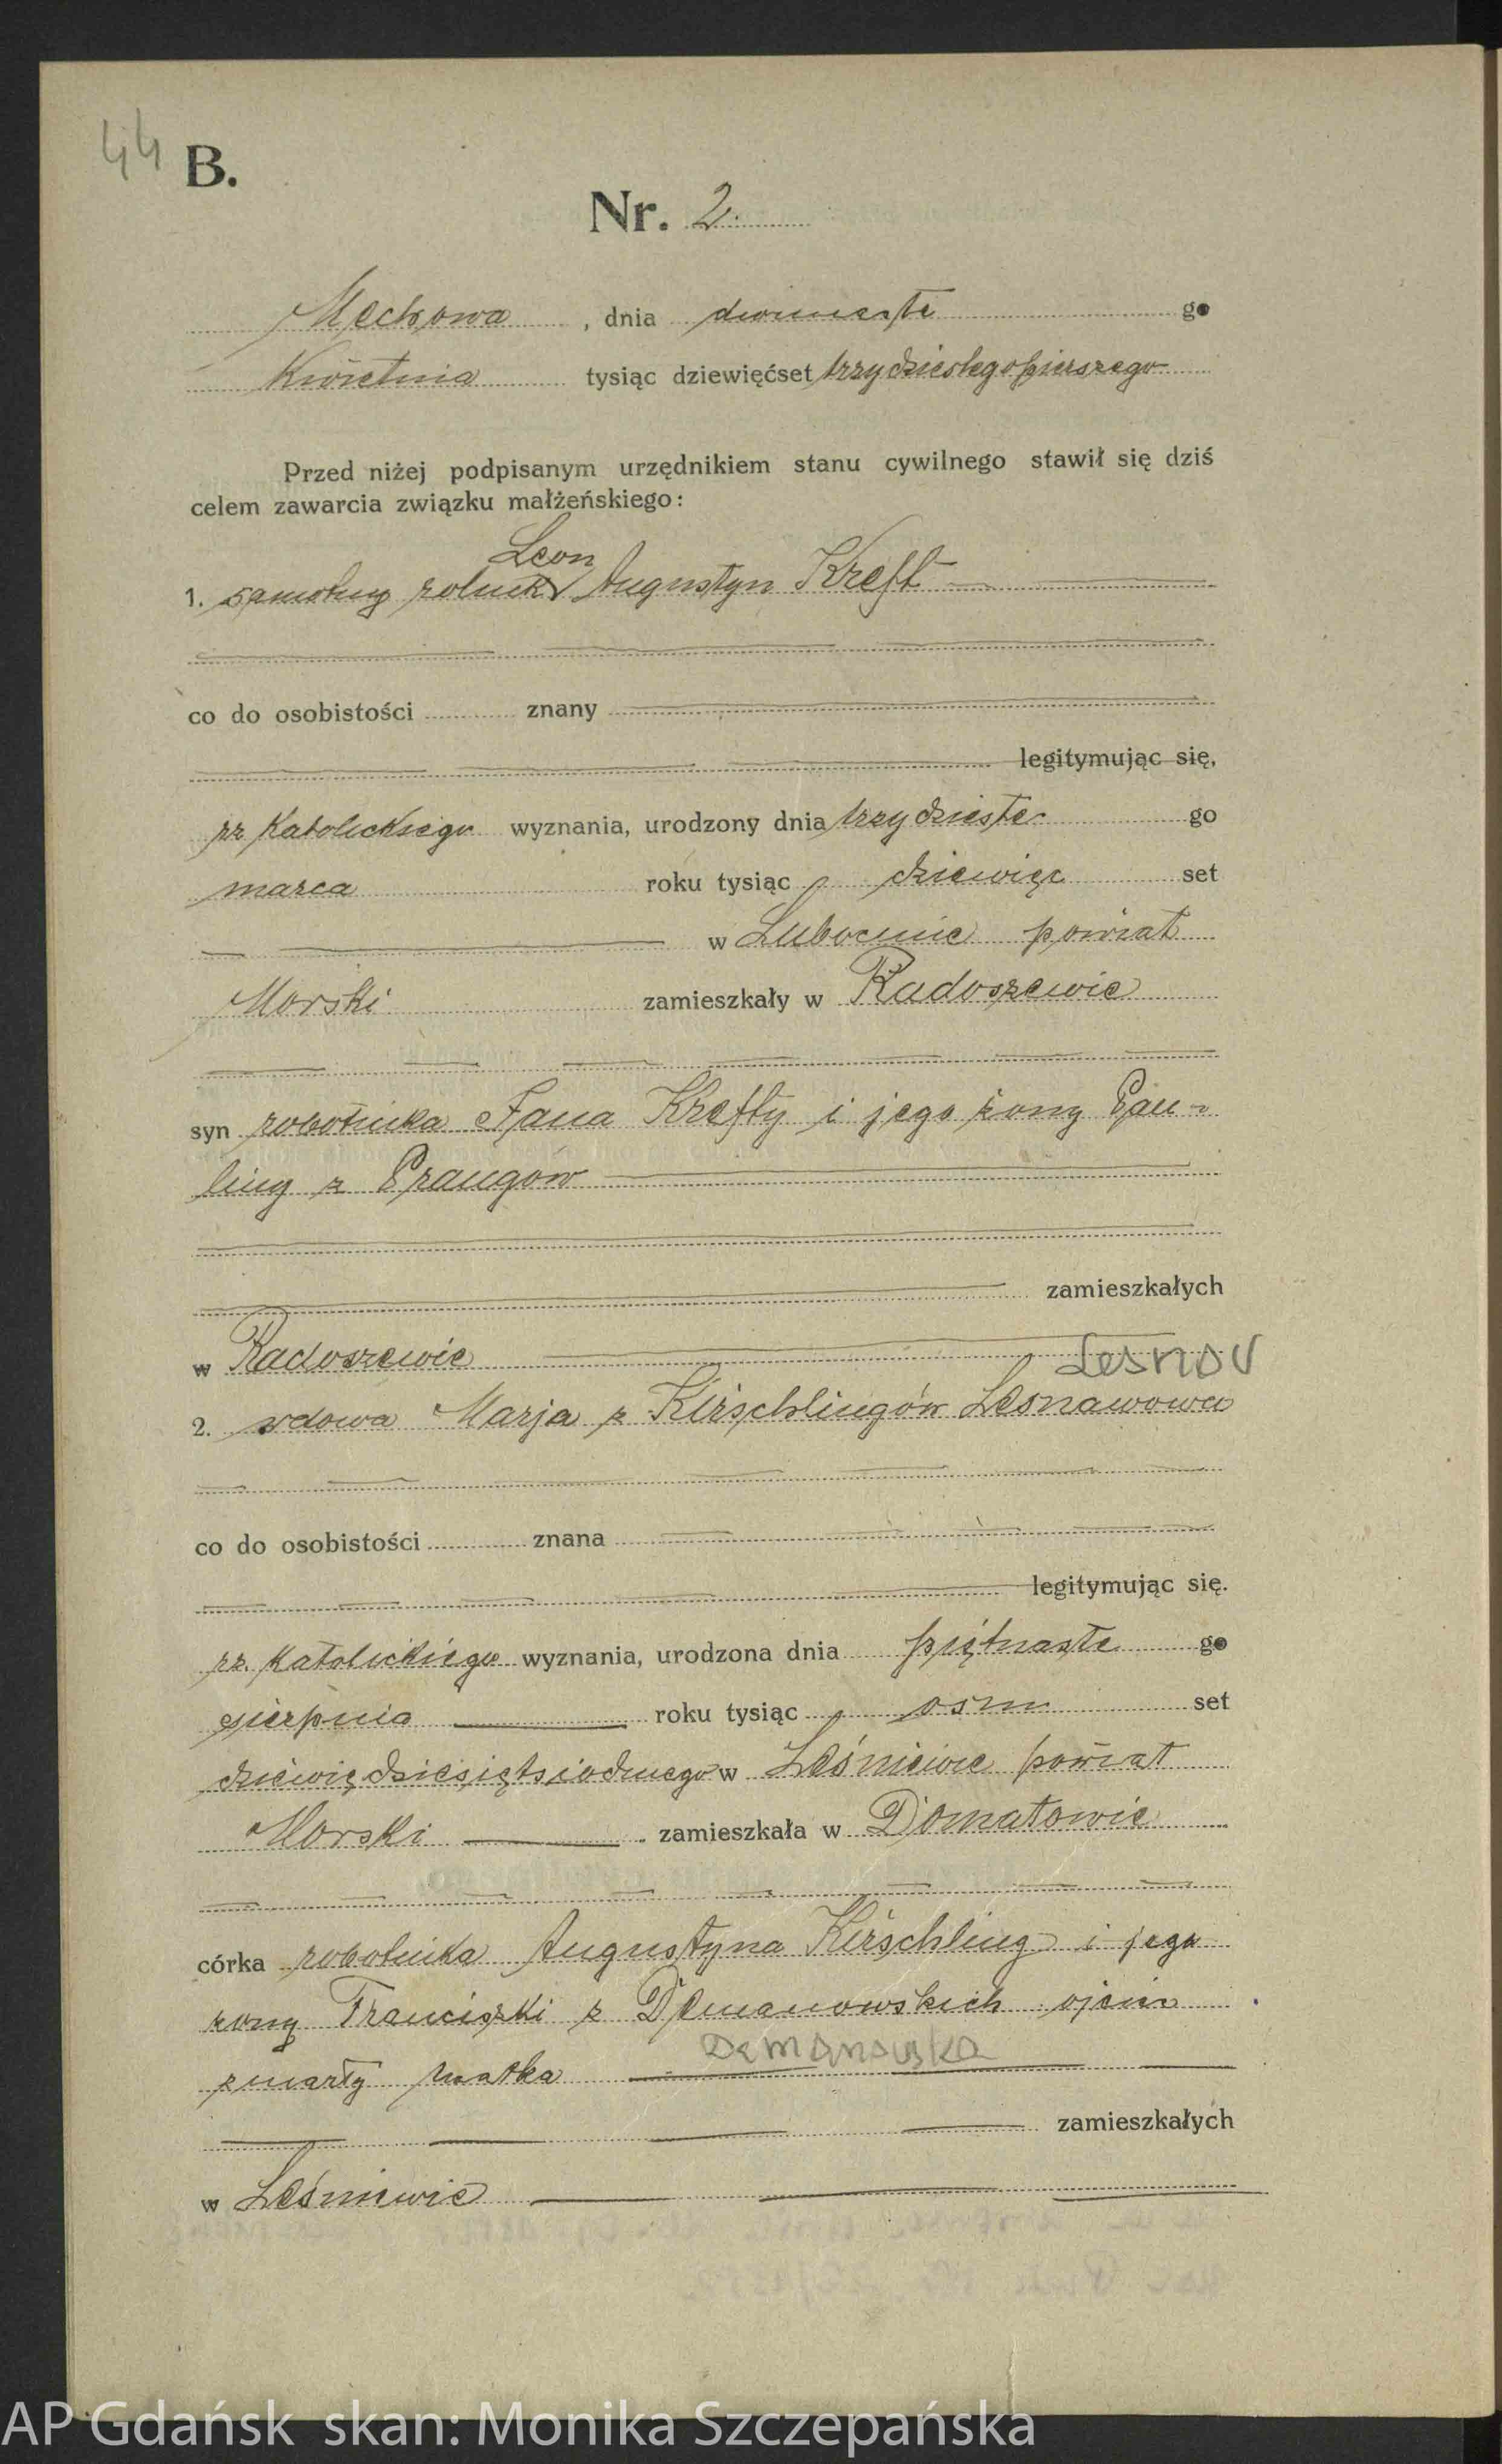 44 B.
Nr. 2.
Mechowa , dnia go
Kwietnia tysiąc dziewięćset trzydziestego pierszego
Przed niżej podpisanym urzędnikiem stanu cywilnego stawił się dziś
celem zawarcia związku małżeńskiego:
Leon
1. samotny rolnik Augustyn Kreft
co do osobistości znany
legitymując się,
rz. katolickiego wyznania, urodzony dnia trzydzieste go
marca roku tysiąc dziewięć set
w Lubocinie powiat
Morski zamieszkały w Radoszewie
syn robotnika Jana Krefty i jego żony Pau-
liny z Prangów
zamieszkałych
w Radoszewie
Lesnov
2. wdowa Marja z Kirschlingów Lesnawowa
co do osobistości znana
legitymując się.
rz. katolickiego wyznania, urodzona dnia piętnaste go
sierpnia roku tysiąc osm set
dziewiędziesiętsiodmego w Leśniewie powiat
Morski zamieszkała w Domatowie
córka robotnika Augustyna Kirschling i jego
żony Franciszki z Demanowskich ojciec
Demanowska
zmarły matka
zamieszkałych
w Leśniewie
AP Gdańsk skan: Monika Szczepańska